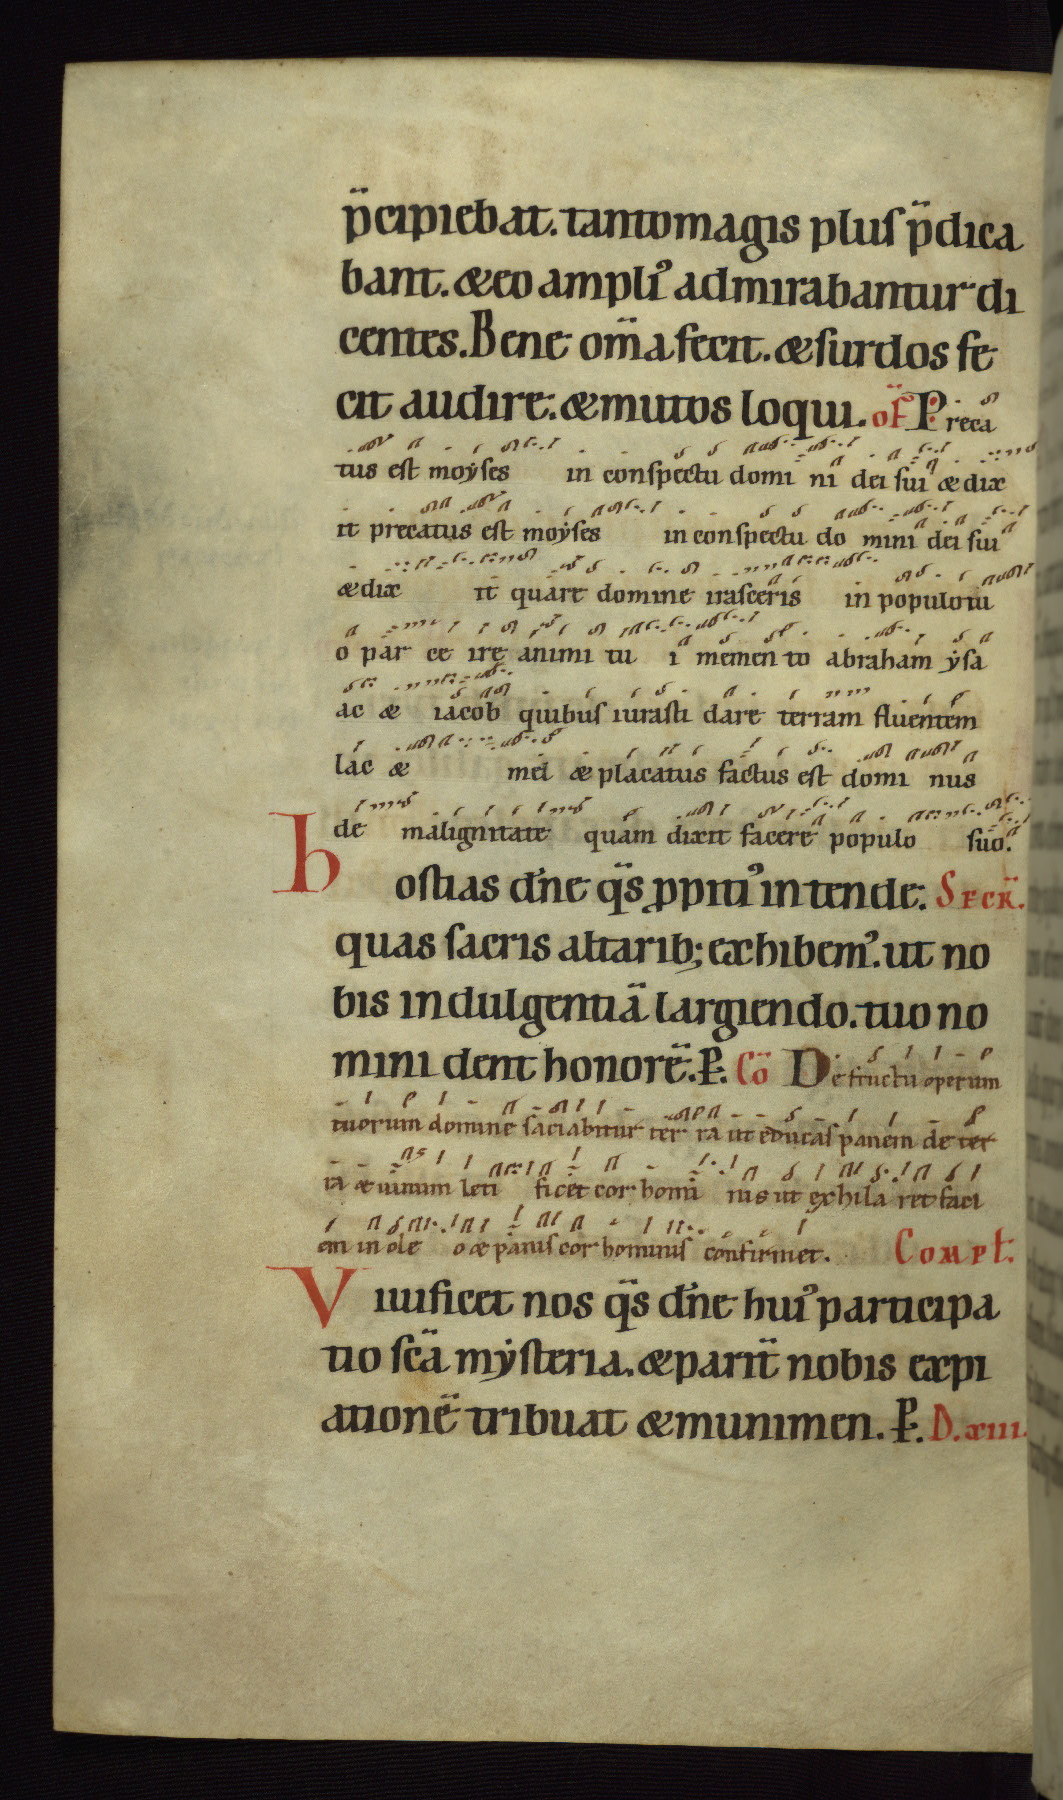 p̄cipiebat. tantomagis pluſ p̄dica
bant. & eo ampliꝰ admirabantur di
centes. Bene om̄a fecit. & ſurdos fe
cit audire. & mutos loqui. of̄ Preca
tus eſt moẏſes in conſpectu domi ni dei ſui & dix
it precatus eſt moẏſes in conſpectu do mini dei ſui
& dix it quare domine iraſceris in populo tu
o par ce ire animi tu i memen to abraham ẏſa
ac & iacob quibuſ iuraſti dare terram fluentem
lac & mel & placatus factus eſt domi nus
de malignitate quam dixit facere populo ſuo.
hoſtias dn̄e q̄s ꝓpitiꝰ intende. Secr̄.
quas ſacris altarib; exhibemꝰ. ut no
bis indulgentiā largiendo. tuo no
mini dent honorē. P. Cō De fructu operum
tuorum domine ſaciabitur ter ra ut educaſ panem de ter
ra & uinum leti ficet cor homi nis ut exhila ret faci
em in ole o & panis cor hominiſ confirmet. Compl̄.
Viuificet nos q̄s dn̄e huiꝰ participa
tio ſc̄a mẏſteria. & parit̄ nobis expi
ationē tribuat & munimen. P. D. xiii.